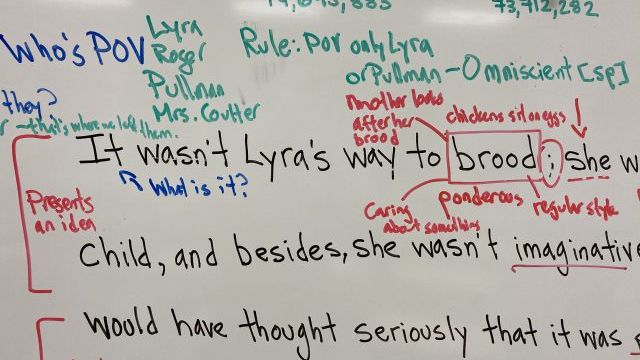 73,712,282
Who's POV
Lyra
Roger
Pullman
Mrs. Coulter
Rule: POV only Lyra
or Pullman - Omniscient [sp]
they?
that's where we left them.
Mother looks
after her
brood
chickens sit on eggs
It wasn't Lyra's way to brood; she w
What is it?
Presents
an idea
Caring
about something
ponderous
regular style
Child, and besides, she wasn't imaginative
would have thought seriously that it was